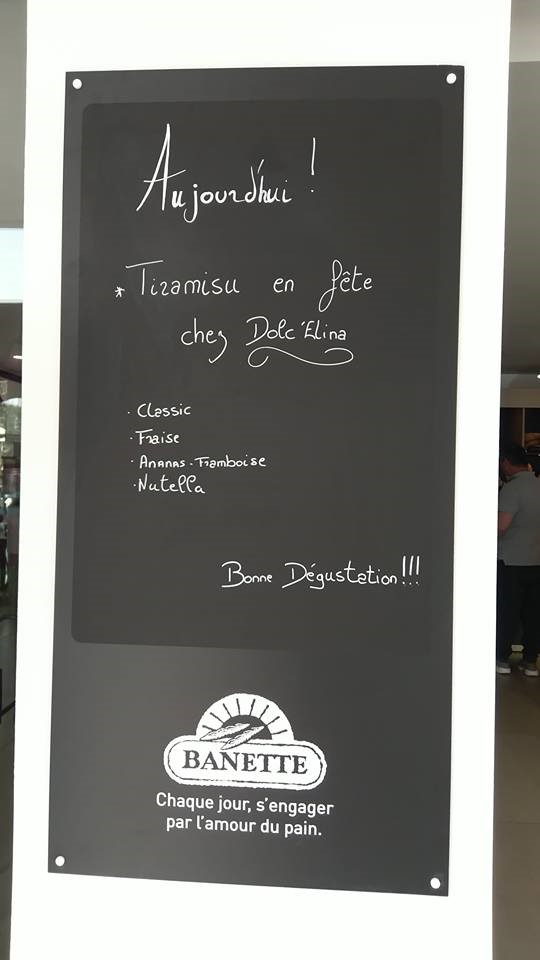 Aujourd'hui !
* Tiramisu en fête
chez Dolc'Elina
· Classic
· Fraise
· Ananas - Framboise
· Nutella
Bonne Dégustation !!!
BANETTE
Chaque jour, s'engager
par l'amour du pain.